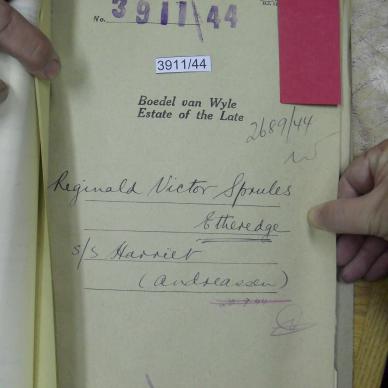 No. 3911/44
3911/44
Boedel van Wyle
Estate of the Late
2689/44
Reginald Victor Sproules
Etheredge
s/s Harriet
(Andreassen)